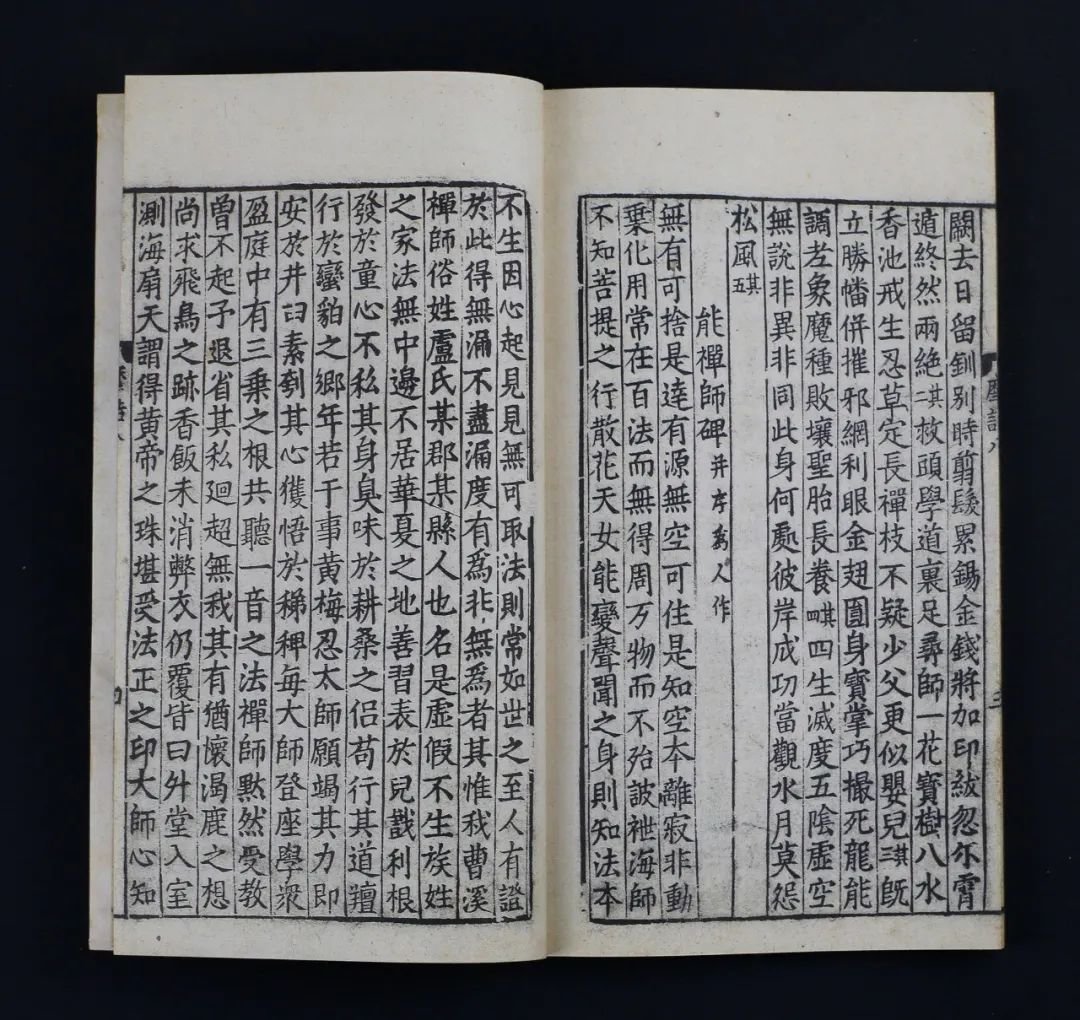 闕去日留釧別時剪髮累錫金錢將加印紱忽尒霄
遁終然兩絕其二救頭學道裹足尋師一花寶樹八水
香池戒生忍草定長禪枝不疑少父更似嬰兒其三既
立勝幡併摧邪網利眼金翅圓身寶掌巧撮死龍能
調老象魔種敗壞聖胎長養其四四生滅度五陰虛空
無說非異非同此身何處彼岸成功當觀水月莫怨
松風其五
能禪師碑并序為人作
無有可捨是達有源無空可住是知空本離寂非動
乗化用常在百法而無得周万物而不殆鼓枻海師
不知菩提之行散花天女能變聲聞之身則知法本
不生因心起見見無可取法則常如世之至人有證
於此得無漏不盡漏度有為非無為者其惟我曹溪
禪師俗姓盧氏某郡某縣人也名是虛假不生族姓
之家法無中邊不居華夏之地善習表於兒戲利根
發於童心不私其身臭味於耕桑之侶苟行其道羶
行於蠻貊之鄉年若干事黄梅忍太師願竭其力即
安於井臼素刳其心獲悟於稊稗每大師登座學衆
盈庭中有三乗之根共聽一音之法禪師黙然受教
曾不起予退省其私迴超無我其有猶懷渴鹿之想
尚求飛鳥之跡香飯未消弊衣仍覆皆曰升堂入室
測海窺天謂得黄帝之珠堪受法正之印大師心知
三
四